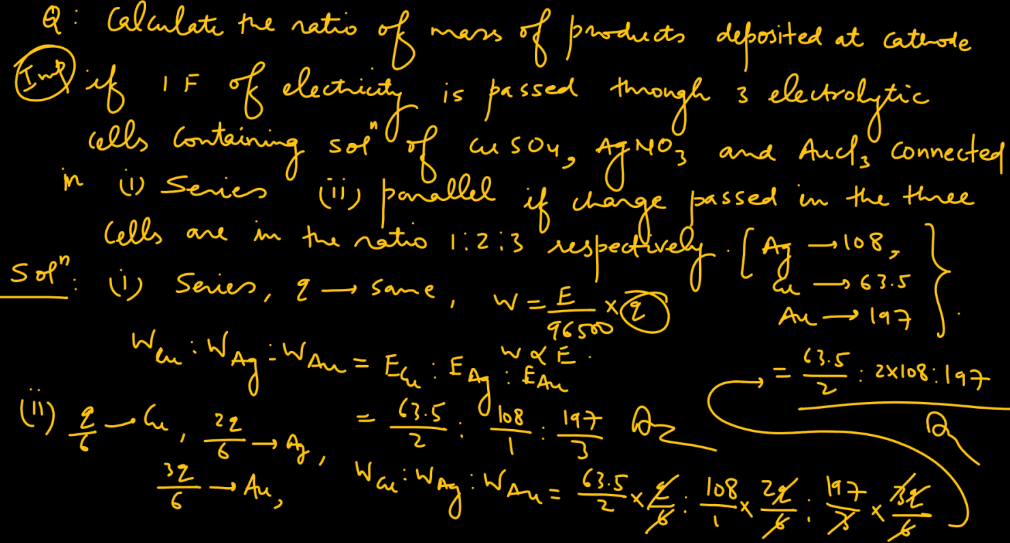 Q: Calculate the ratio of mass of products deposited at cathode
Imp if 1 F of electricity is passed through 3 electrolytic
cells containing solⁿ of CuSO4, AgNO3 and AuCl3 connected
in (i) Series (ii) parallel if charge passed in the three
cells are in the ratio 1:2:3 respectively. [Ag → 108,
Cu → 63.5
Au → 197}.
Solⁿ: (i) Series, q → same, W = E/96500 × q
W ∝ E.
W_Cu : W_Ag : W_Au = E_Cu : E_Ag : E_Au
= 63.5/2 : 108/1 : 197/3
(ii) q/6 → Cu, 2q/6 → Ag,
3q/6 → Au, W_Cu : W_Ag : W_Au = 63.5/2 × q/6 : 108/1 × 2q/6 : 197/3 × 3q/6
= 63.5/2 : 2×108 : 197